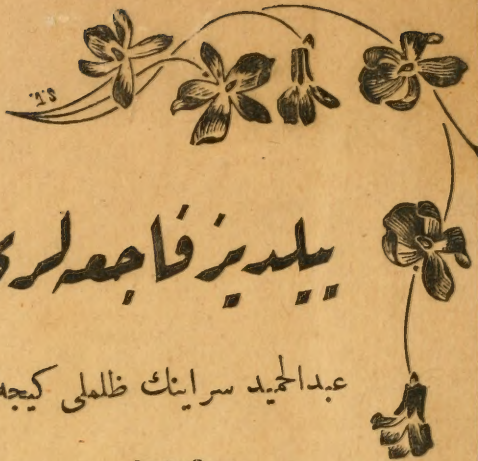 ييلديز فاجعه‌لرى
عبدالحميد سراينك ظلملى كيجه